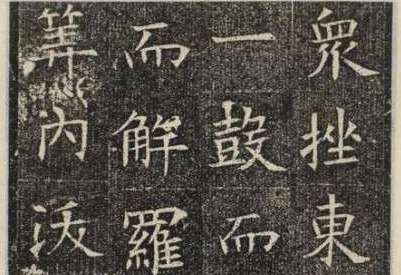 衆挫東
一鼓而
而解羅
筭內沃